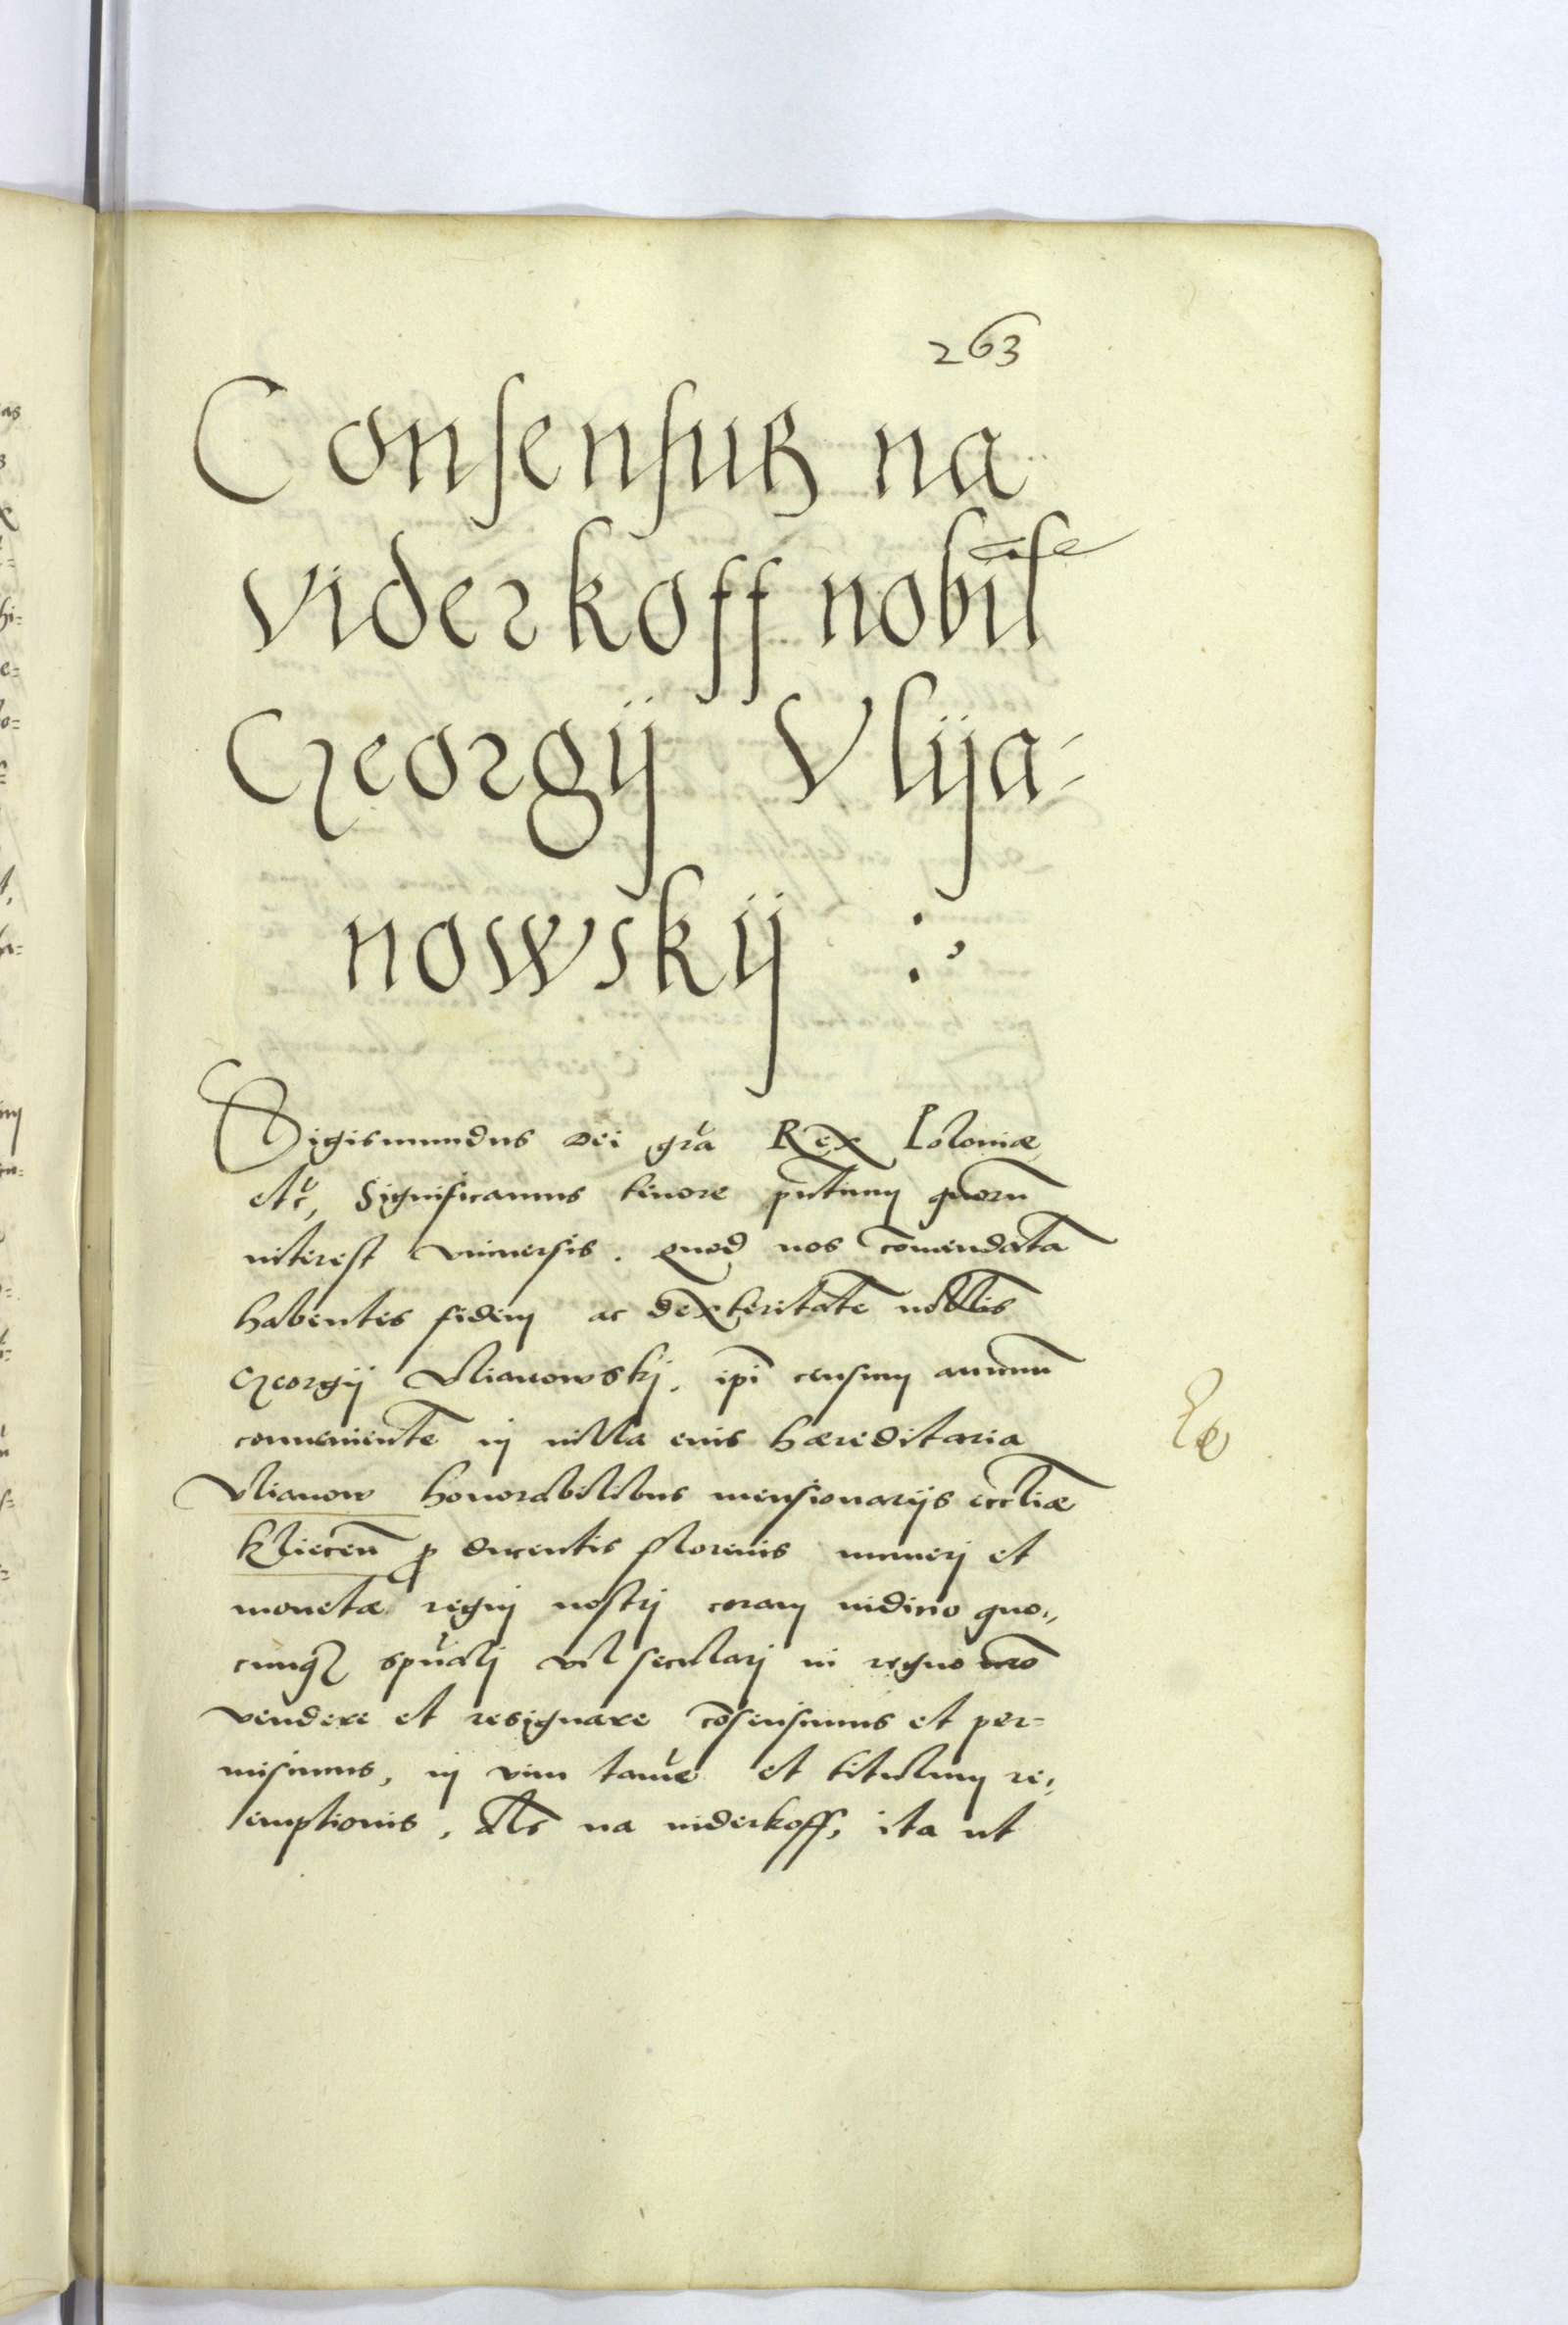 263
Consensuß na
viderkoff nobil
Georgij Vlija-
nowskij :,
Sigismundus Dei gra Rex Poloniæ
etc, Significamus tenore pntium quorum
interest vniuersis. quod nos comendata
habentes fidem ac dexteritate nobilis
Georgij Vlianowskj, ipi censum annuum
conueniente in villa eius hæreditaria
Vlianow honorabilibus mensionarijs eccliæ
Kliecen p ducentis florenis numerj et
monetæ regnj nostrj coram iudicio quo„
cunqz spualj vel secularj in regno nro
vendere et resignare cosensimus et per=
misimus, in vim tame et titulum re„
emptionis, Als na viderkoff, ita ut